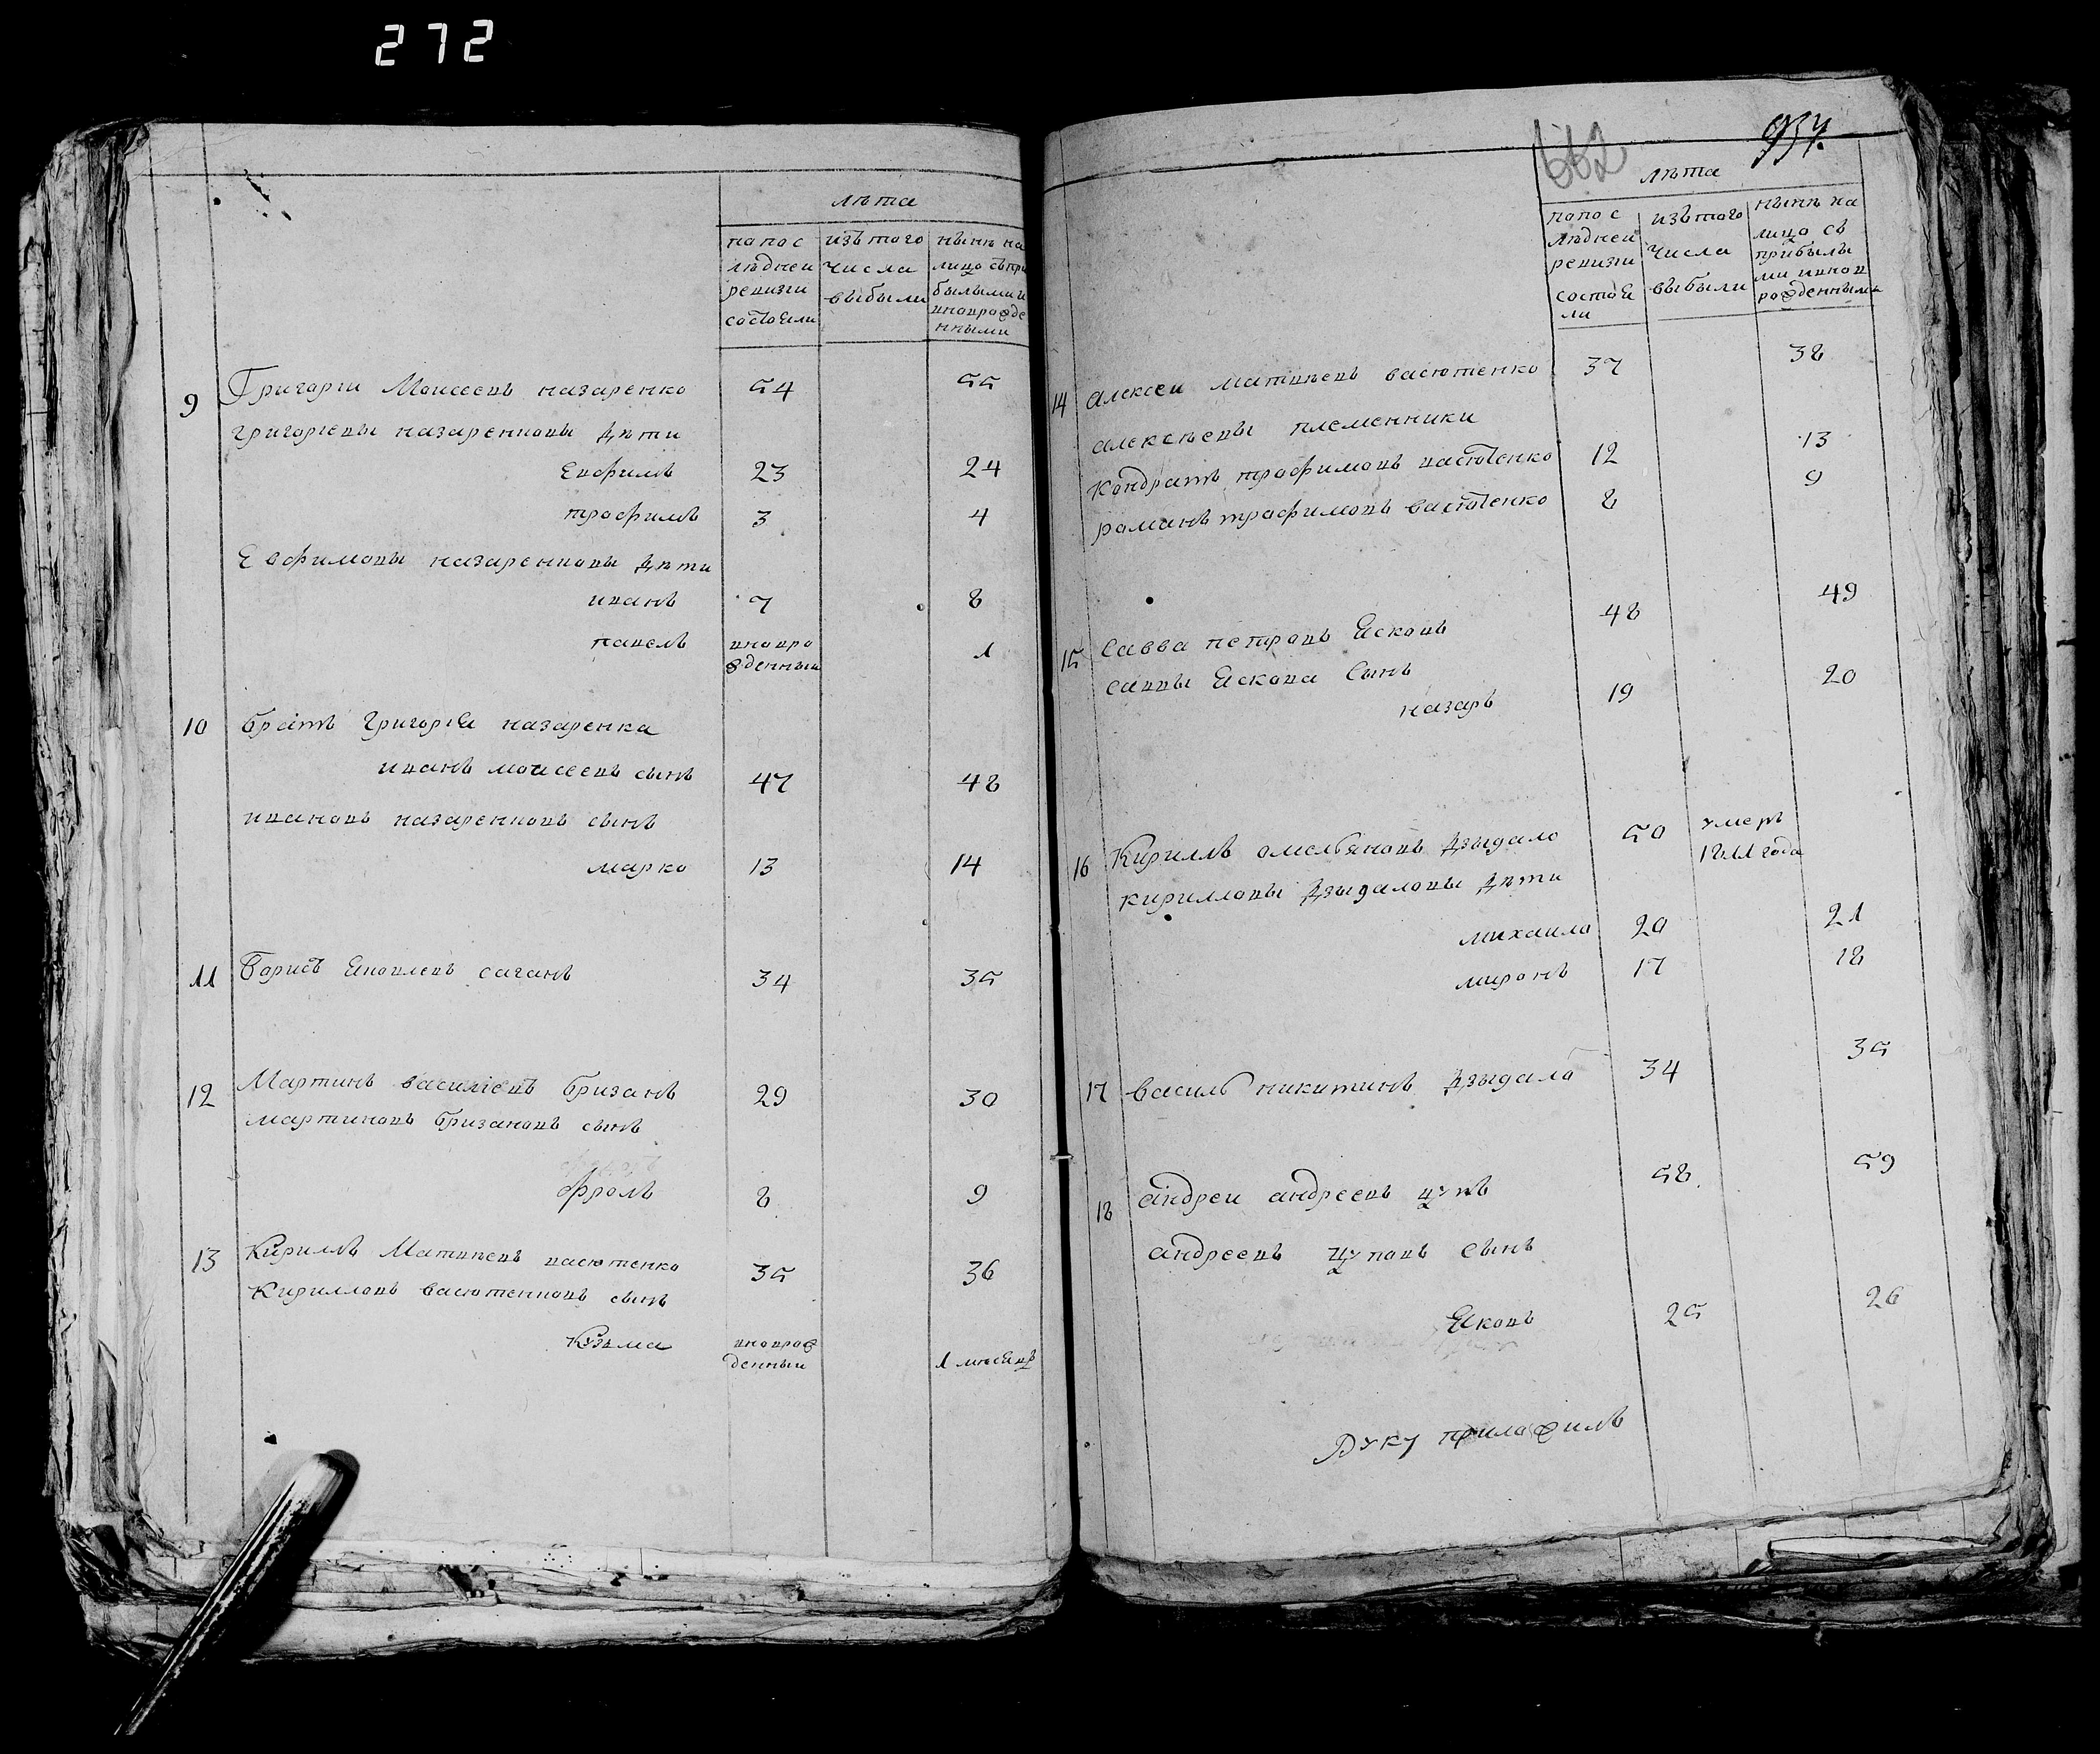 272
лѣта
по пос
лѣднеи
ревизіи
состояли
изъ того
числа
выбыли
нынѣ на
лицо съ при
былыми и
вновро жде
нными
9 Григорій Моисеевъ назаренко 54 55
григорьевы назаренковы дѣти
Евфимъ 23 24
трофимъ 3 4
Евфимовы назаренковы дѣти
иванъ 7 8
павелъ вновро 1
жденныи
10 братъ григорія назаренка
иванъ моисеевъ сынъ 47 48
ивановъ назаренковъ сынъ
марко 13 14
11 Борисъ яковлевъ саганъ 34 35
12 Мартинъ василіевъ бризанъ 29 30
мартиновъ бризановъ сынъ
фролъ 8 9
13 Кирилъ Матвѣевъ васютенко 35 36
Кириловъ васютенковъ сынъ
Кузма вновро ж 1 мѣсяцъ
денныи
662 934.
лѣта
по пос
лѣднеи
ревизіи
состоя
ли
изъ того
числа
выбыли
нынѣ на
лицо съ
прибылы
ми и внов
рожденными
14 алексеи матвѣевъ васютенко 37 38
алексѣевы племенники
кондратъ трофимовъ васютенко 12 13
романъ трофимовъ васютенко 8 9
15 Савва петровъ Ясковъ 48 49
саввы Яскова сынъ
назаръ 19 20
16 Кирилъ омельяновъ дзыгало 50 умеръ
1811 года
кириловы дзыгаловы дѣти
михаило 20 21
миронъ 17 18
17 василь никитинъ дзыгало 34 35
18 андреи андреевъ цупъ 58 59
андреевъ цуповъ сынъ
Яковъ 25 26
Руку приложилъ